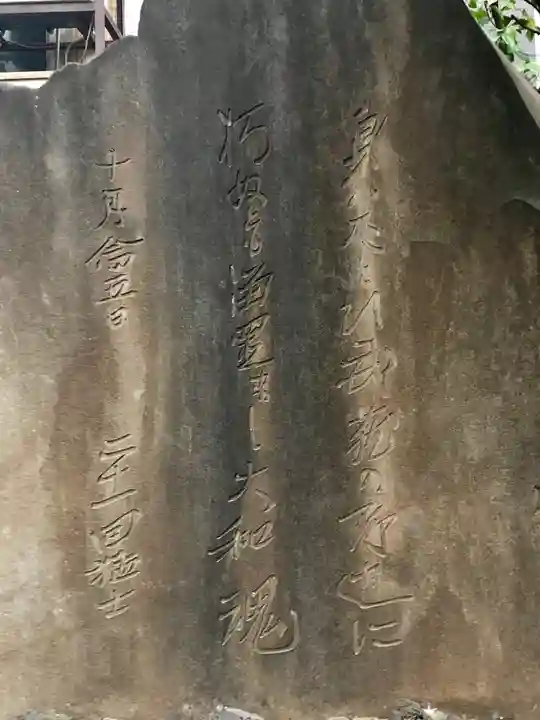 身ハたとひ武蔵の野辺に
朽ぬとも留置まし大和魂
十月念五日 二十一回猛士